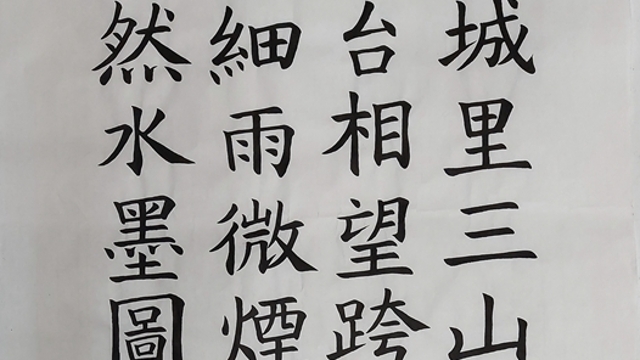 城里三山
台相望跨
細雨微煙
然水墨圖